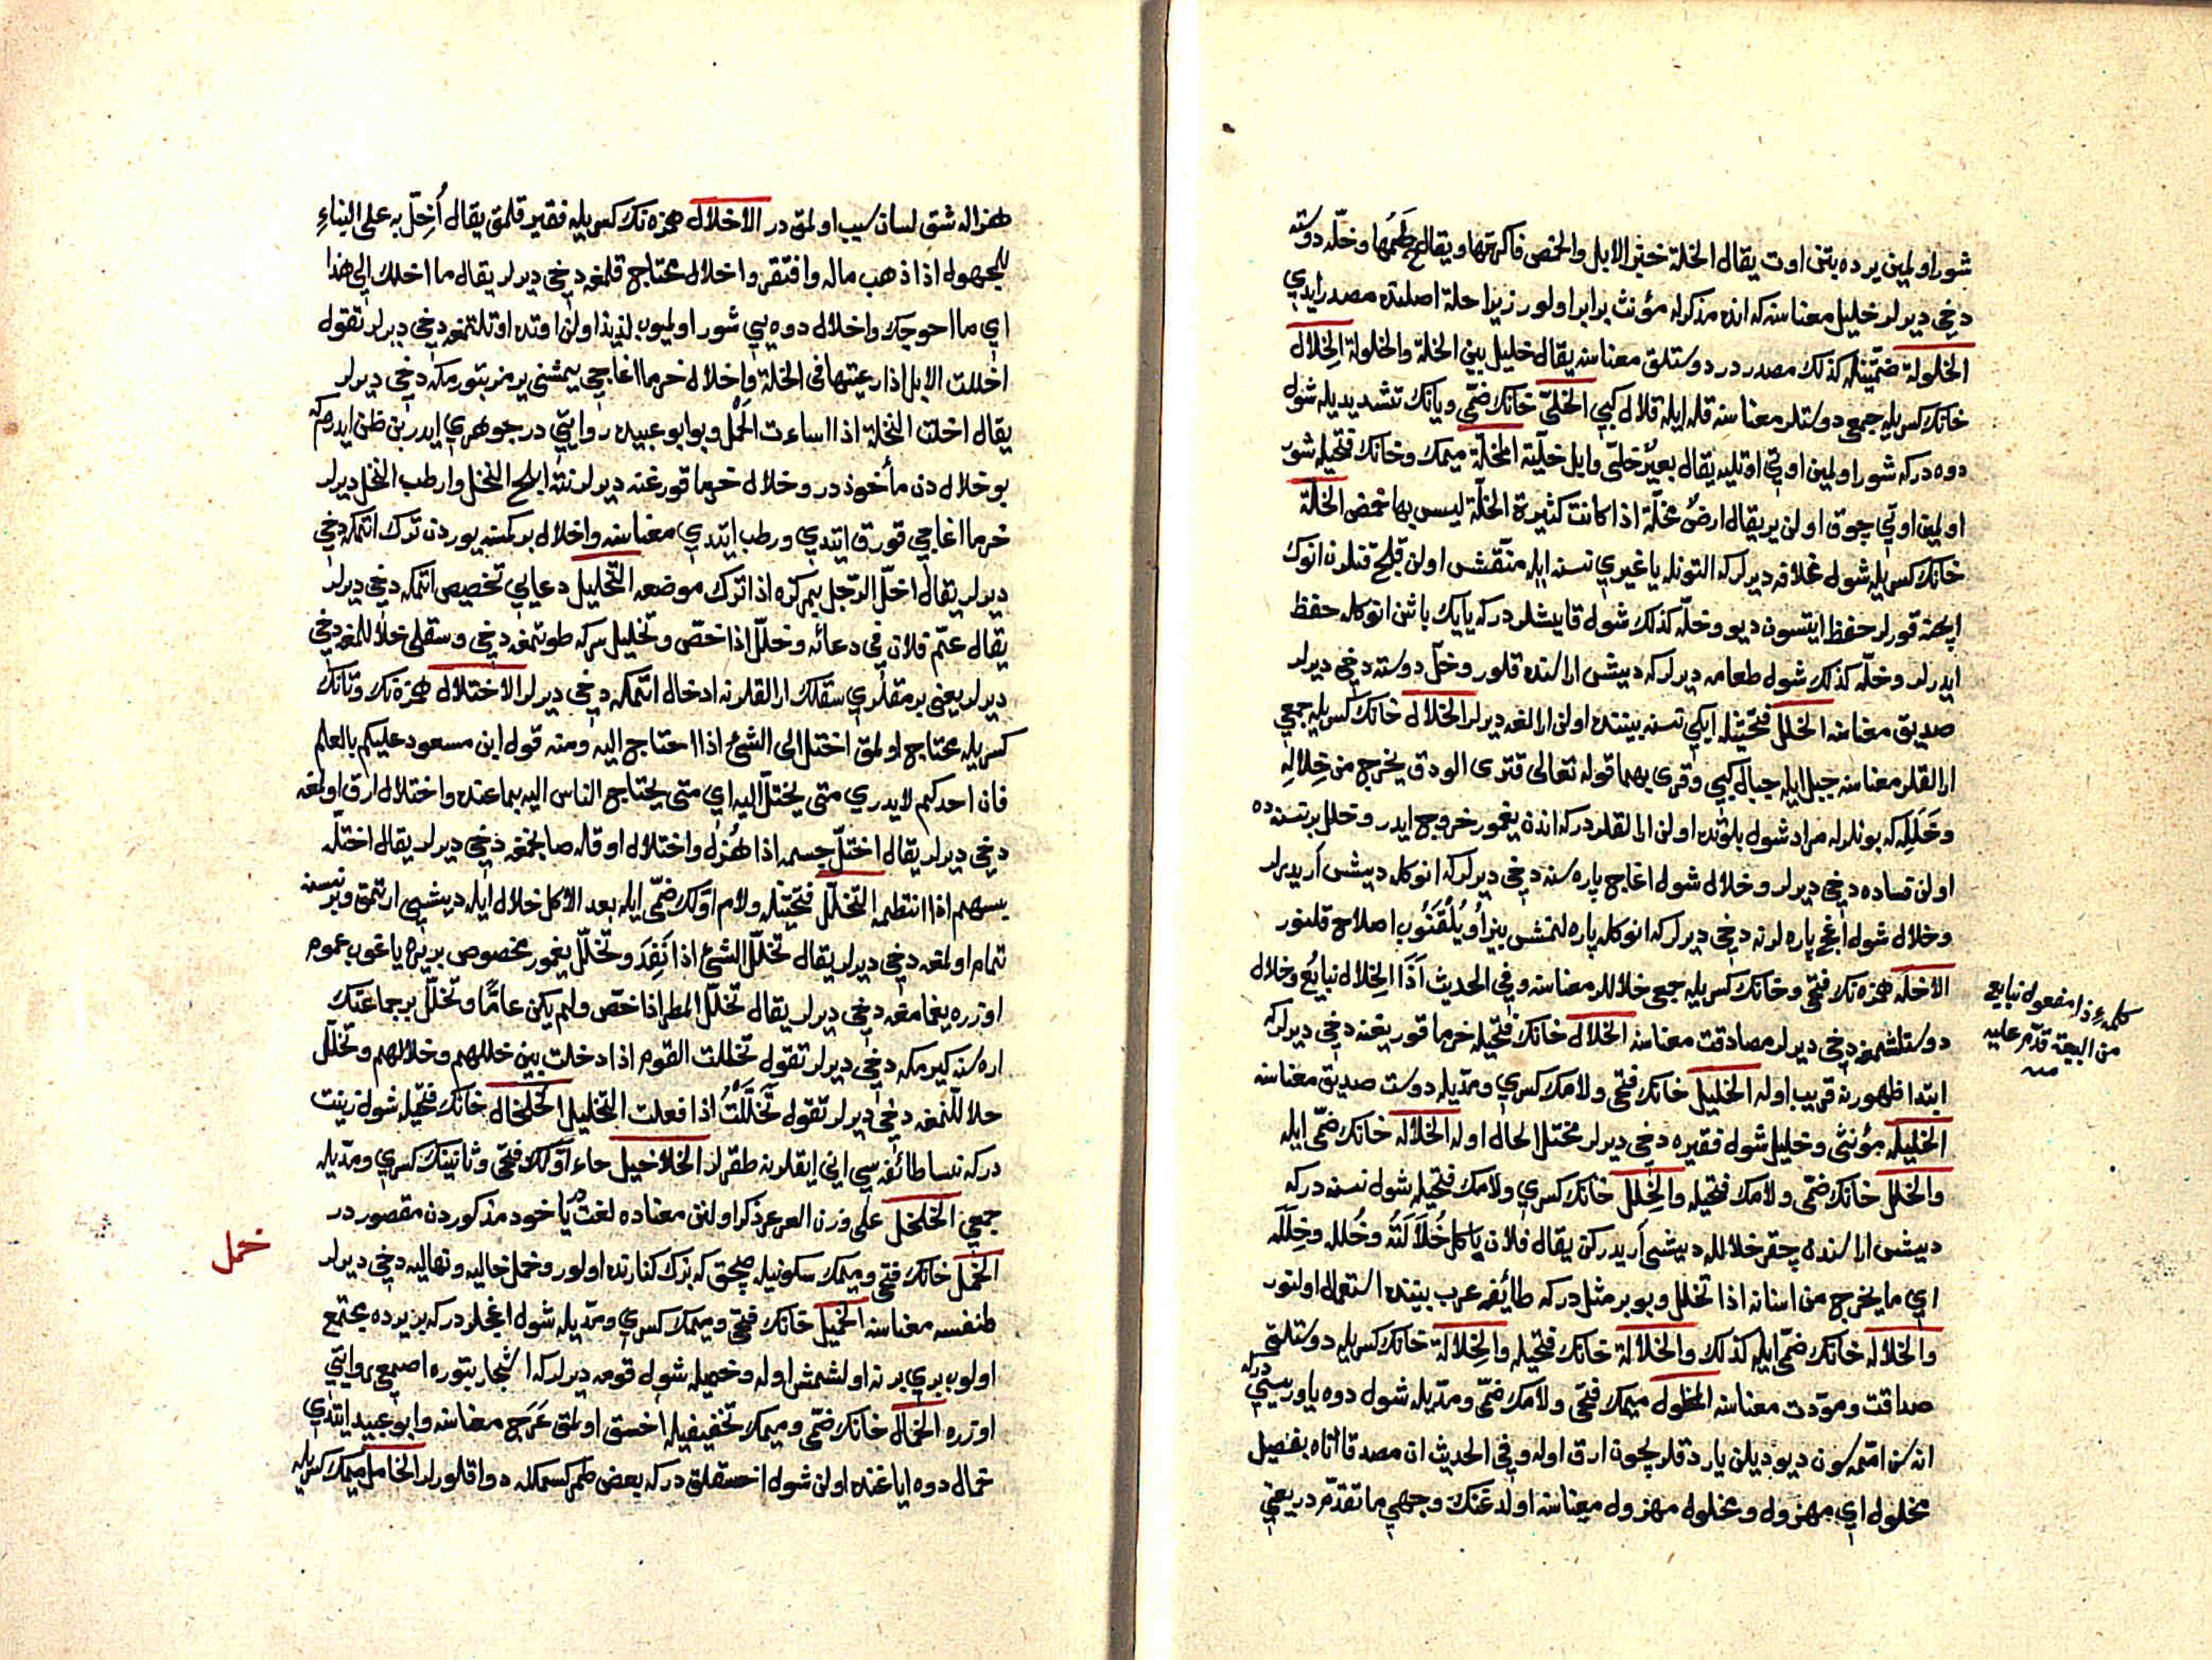 شور اولمين يرده بتن اوت يقال الخلة خبز الابل والحمض فاكهتها ويقال لحمها وخلّه دوسته
دخي ديرلر خليل معناسنه كه انده مذكرله مؤنث برابر اولور زيرا خلة اصلنده مصدر ايدي
الخلولة ضمّتينله كذلك مصدر در دوستلق معناسنه يقال خليل بيّن الخلة والخلولة الخِلال
خانك كسريله جمعى دوستلر معناسنه قله ايله قلال كبي الخلّيّ خانك ضمّى ويانك تشديديله شول
دوه دركه شور اولمين اوتى اوتليه يقال بعيرٌ خلّيّ وابل خلّية المخلّة ميمك وخانك فتحيله شور
اولمين اوتى چوق اولن ير يقال ارضٌ مخلّة اذا كانت كثيرة الخلّة ليس بها حمض الخلّة
خانك كسريله شول غلافه ديرلركه التونله يا غيرى نسنه ايله منقّش اولن قلج قنلرن انوك
ايچنه قورلر حفظ ايتسون ديو وخلّه كذلك شول قايشلر دركه يايك باشن انوكله حفظ
ايدرلر وخلّه كذلك شول طعامه ديرلركه ديش اراسنده قلور وخلّ دوسته دخي ديرلر
صديق معناسنه الخلل فتحتينله ايكى نسنه بيننده اولن ارالغه ديرلر الخلال خانك كسريله جمعى
ارالقلر معناسنه جبل ايله جبال كبي وقرى بهما قوله تعالى فترى الودق يخرج من خِلالِهِ
وخَلَلِه كه بونلرله مراد شول بلوتده اولن ارالقلر دركه اندن يغمور خروج ايدر وخلل بر نسنه ده
اولن فساده دخي ديرلر وخلال شول اغاج پاره سنه دخي ديرلركه انوكله ديش اريدرلر
وخلال شول اغج پاره لرنه دخي ديرلركه انوكله پاره لنمش بيز اويُلُقنوب اصلاح قلنور
الاخلّه همزه نك فتحى وخانك كسريله جمعى خلاللر معناسنه وفي الحديث اذا الخِلال نبايع وخلال
دوستلشمغه دخي ديرلر مصادقت معناسنه الخلال خانك فتحيله خرما قوريغنه دخي ديرلركه
ابتدا ظهورنه قريب اوله الخليل خانك فتحى ولامك كسرى ومدّيله دوست صديق معناسنه
الخليله مؤنثى وخليل شول فقيره دخي ديرلر مختل الحال اوله الخلاله خانك ضمّى ايله
والخلل خانك ضمّى ولامك فتحيله والخِلل خانك كسرى ولامك فتحيله شول نسنه دركه
ديش اراسنده چقر خلالله ديشى اريدركن يقال فلان ياكل خُلالَتَه وخُلله وخِلَلَه
اي ما يخرج من اسنانه اذا تخلل وبو بر مثل دركه طائفه عرب بيننده استعمال اولنور
والخلاله خانك ضمّى ايله كذلك والخلالة خانك فتحيله والخِلالة خانك كسريله دوستلق
صداقت ومودّت معناسنه المخلول ميمك فتحى ولامك ضمّى ومدّيله شول دوه ياوريسيدركه
اناسن اممسون ديو ديلن يارد قلر چون ارق اوله وفي الحديث ان مصدقا اتاه بفصيل
مخلول اي مهزول ومخلول مهزول معناسنه اولدغنك وجهى ما تقدّم در يعني
كلمهٔ ذا مفعول نبايع
من البيع قدّم عليه
منه
هزاله شق لسان سبب اولمق در الاخلال همزه نك كسريله فقير قلمق يقال أُخِلّ به على البناءِ
للمجهول اذا ذهب ماله وافتقر واخلال محتاج قلمغه دخي ديرلر يقال ما اخلك الى هذا
اي ما احوجك واخلال دوه يى شور اولميوب لذيذ اولن اوتده اوتلتمغه دخي ديرلر تقول
اخللت الابل اذا رعيتها في الخلّة واِخلال خرما اغاجى يمشنى يرمز بتورمكه دخي ديرلر
يقال اخلت النخلة اذا اساءت الحَمْل وبو ابو عبيده روايتى در جوهرى ايدر بن ظن ايدرم كه
بو خلال دن مأخوذ در وخلال خرما قورغنه ديرلر نته ابلح النخل وارطب النخل ديرلر
خرما اغاجى قورق ايتدي ورطب ايتدي معناسنه واخلال بر كمسه يوردن ترك اتمكه دخي
ديرلر يقال اخلّ الرّجل بمركزه اذا ترك موضعه التخليل دعايي تخصيص اتمكه دخي ديرلر
يقال عمّ فلان في دعائه وخلّل اذا خصّ وتخليل سركه طوتمغه دخي وسقلى خلاللمغه دخي
ديرلر يعني برمقلرى سقلك ارالقلرنه ادخال اتمكه دخي ديرلر الاختلال همزه نك وتانك
كسريله محتاج اولمق اختل الى الشيء اذا احتاج اليه ومنه قول ابن مسعود عليكم بالعلم
فان احدكم لا يدري متى يختلّ اليه اي متى يحتاج الناس اليه بما عنده واختلال ارق اولمغه
دخي ديرلر يقال اختلّ جسمه اذا هُزِل واختلال اوقله صانجمغه دخي ديرلر يقال اختلّه
بسهم اذا انتظمه التخلّل فتحتينله ولام اوّلك ضمّى ايله بعد الاكل خلال ايله ديشى ارتمق وبر نسنه
تمام اولمغه دخي ديرلر يقال تخلّل الشيءُ اذا نَفِدَ وتخلّل يغمور مخصوص بر يره ياغوب عموم
اوزره يغمامغه دخي ديرلر يقال تخلّل المطر اذا خصّ ولم يكن عامًّا وتخلّل بر جماعتك
اره سنه كيرمكه دخي ديرلر تقول تخللت القوم اذا دخلت بين خللهم وخلالهم وتخلّل
خلاللنمغه دخي ديرلر تقول تَخَلَّلْتُ اذا فعلت التخليل الخلخال خانك فتحيله شول زينت
دركه نسا طائفه سي اني ايقلرنه طقرلر الخلاخيل خاء اوّلك فتحى وثانينك كسرى ومدّيله
جمعى الخلخل على وزن العرعر ذكر اولنن معناده لغت در يا خود مذكوردن مقصور در
الخمل خانك فتحى وميمك سكونيله صچق كه بزك كنارنده اولور وخمل خاليه ونهاليه دخي ديرلر
خمل
طنفسه معناسنه الخميل خانك فتحى وميمك كسرى ومدّيله شول اغچلر دركه بر يرده مجتمع
اولوب برى برنه اولشمش اوله وخميله شول قومه ديرلركه اشجار بتوره اصمعى روايتى
اوزره الخمال خانك ضمّى وميمك تخفيفيله اخسق اولمق عَرَج معناسنه وابو عبيد ايتدي
خمال دوه اياغنده اولن شول اخسقلق دركه بعض طمر كسمكله دوا قلورلر الخامل ميمك كسريله